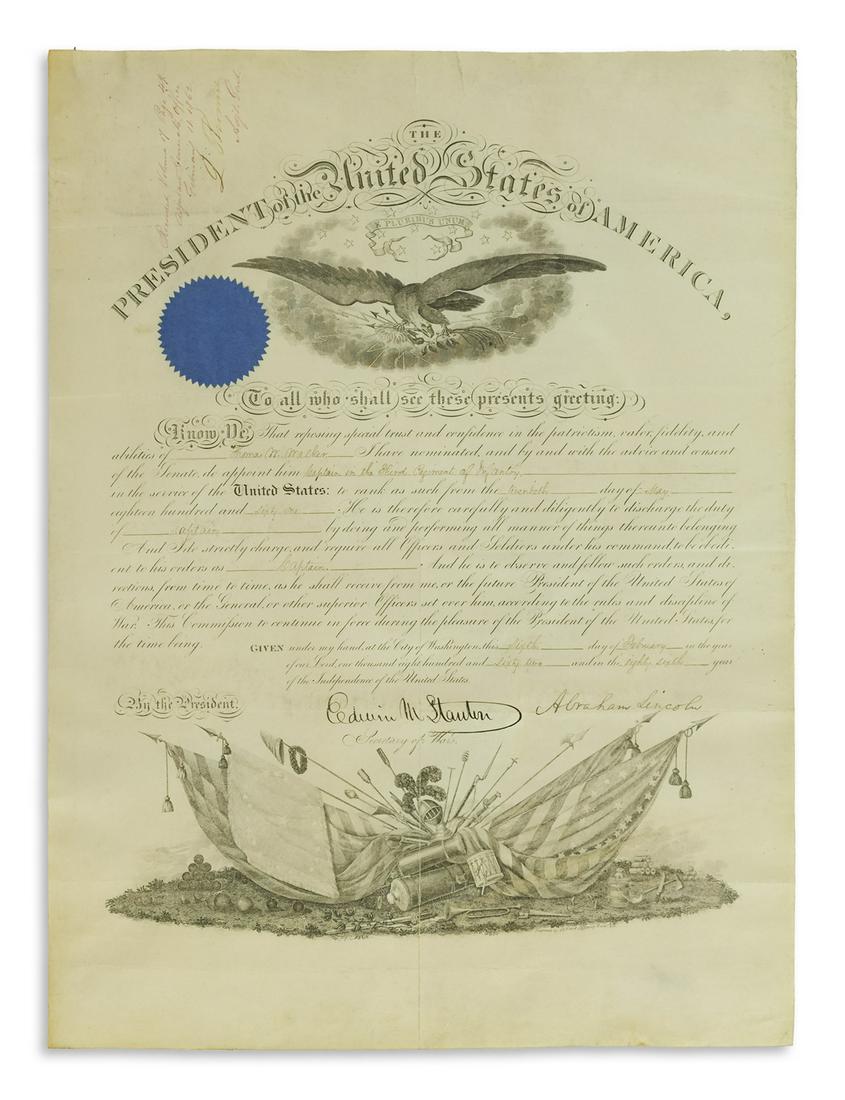 THE
PRESIDENT of the United States of AMERICA,
E PLURIBUS UNUM
To all who shall see these presents greeting:
Know Ye, That reposing special trust and confidence in the patriotism, valor, fidelity, and
abilities of Thomas W. Walker I have nominated, and by and with the advice and consent
of the Senate, do appoint him Captain in the Third Regiment of Infantry
in the service of the United States: to rank as such from the twentieth day of May
eighteen hundred and sixty one. He is therefore carefully and diligently to discharge the duty
of Captain by doing and performing all manner of things thereunto belonging
And I do strictly charge, and require all Officers and Soldiers under his command, to be obedi-
ent to his orders as Captain. And he is to observe and follow such orders, and di-
rections, from time to time, as he shall receive from me, or the future President of the United States of
America, or the General, or other superior Officers set over him, according to the rules and discipline of
War. This Commission to continue in force during the pleasure of the President of the United States, for
the time being.
GIVEN under my hand, at the City of Washington, this Sixth day of February in the year
of our Lord, one thousand eight hundred and sixty two and in the eighty sixth year
of the Independence of the United States.
By the President:
Edwin M Stanton
Abraham Lincoln
Secretary of War.